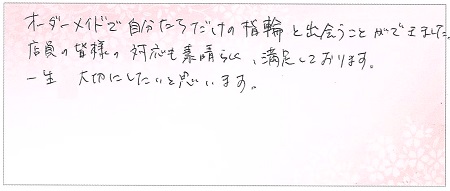 オーダーメイドで自分たちだけの指輪と出会うことができました。
店員の皆様の対応も素晴らしく、満足しております。
一生 大切にしたいと思います。